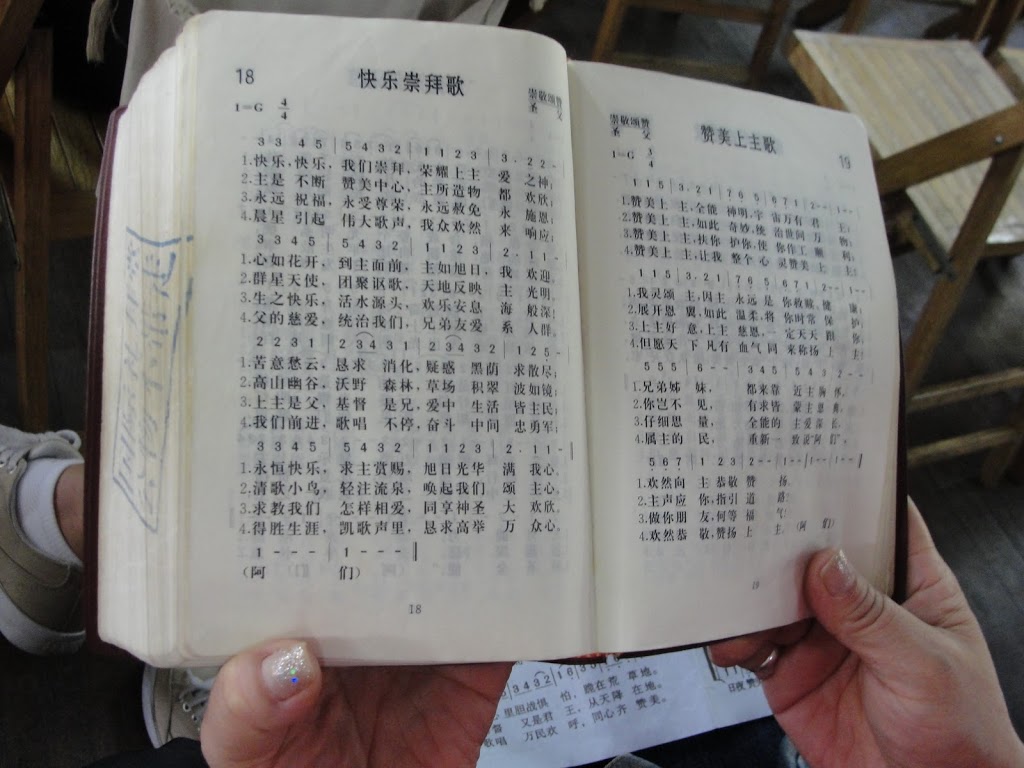 18 快乐崇拜歌
崇敬颂赞
圣 父
1=G 4/4
3 3 4 5 | 5 4 3 2 | 1 1 2 3 | 3 . 2 2 - |
1.快乐,快乐, 我们崇拜, 荣耀上主 爱 之神;
2.主是 不断 赞美中心, 主所造物 都 欢欣;
3.永远 祝福, 永受尊荣, 永远赦免 永 施恩;
4.晨星 引起 伟大歌声, 我众欢然 来 响应;
3 3 4 5 | 5 4 3 2 | 1 1 2 3 | 2 . 1 1 - |
1.心如花开, 到主面前, 主如旭日, 我 欢迎,
2.群星天使, 团聚讴歌, 天地反映 主 光明,
3.生之快乐, 活水源头, 欢乐安息 海 般深;
4.父的慈爱, 统治我们, 兄弟友爱 系 人群,
2 2 3 1 | 2 34 3 1 | 2 34 3 2 | 1 2 5 - |
1.苦意愁云, 恳求 消化, 疑惑 黑荫 求散尽;
2.高山幽谷, 沃野 森林, 草场 积翠 波如镜;
3.上主是父, 基督 是兄, 爱中 生活 皆主民;
4.我们前进, 歌唱 不停, 奋斗 中间 忠勇军;
3 3 4 5 | 5 4 3 2 | 1 1 2 3 | 2 . 1 1 - |
1.永恒快乐, 求主赏赐, 旭日光华 满 我心,
2.清歌小鸟, 轻注流泉, 唤起我们 颂 主心,
3.求教我们 怎样相爱, 同享神圣 大 欢欣,
4.得胜生涯, 凯歌声里, 恳求高举 万 众心,
1 - - - | 1 - - - ‖
(阿 们)
18
崇敬颂赞
圣 父
赞美上主歌 19
1=G 3/4
1 1 5 | 3 . 2 1 | 7 6 5 | 6 7 1 | 2 - - | 1 - - |
1.赞美上 主,全能 神明,宇 宙万有 君 王;
2.赞美上 主,如此 奇妙,统 治世间 万 物;
3.赞美上 主,扶你 护你,使 你作工 顺 利;
4.赞美上 主,让我 整个心 灵赞美上 主;
1 1 5 | 3 . 2 1 | 7 6 5 | 6 7 1 | 2 - - | 1 - - |
1.我灵颂 主,因主 永远是 你救赎,健 康;
2.展开恩 翼,如此 温柔,将 你时常 保 护;
3.上主好 意,上主 慈恩,一 定天天 跟 你;
4.但愿天 下凡有 血气同 来称扬上 主;
5 5 5 | 6 - - | 3 4 5 | 5 4 3 | 2 - - |
1.兄弟姊 妹, 都来靠 近主胸 怀,
2.你岂不 见, 有求皆 蒙主恩 典,
3.仔细思 量, 全能的 主爱深 长,
4.属主的 民, 重新一 致说“阿 们”,
5 6 7 | 1 2 3 | 2 - - | 1 - - | 1 - - ‖
1.欢然向 主恭敬赞 扬.
2.主声应 你,指引道 路.
3.做你朋 友,何等福 气.
4.欢然恭 敬,赞扬上 主. (阿 们)
19
里胆战惧 怕, 跪在荒 草地.
又是君 王,从天降 在地.
歌唱 万民欢 呼,同心齐 赞美.
日夜赞